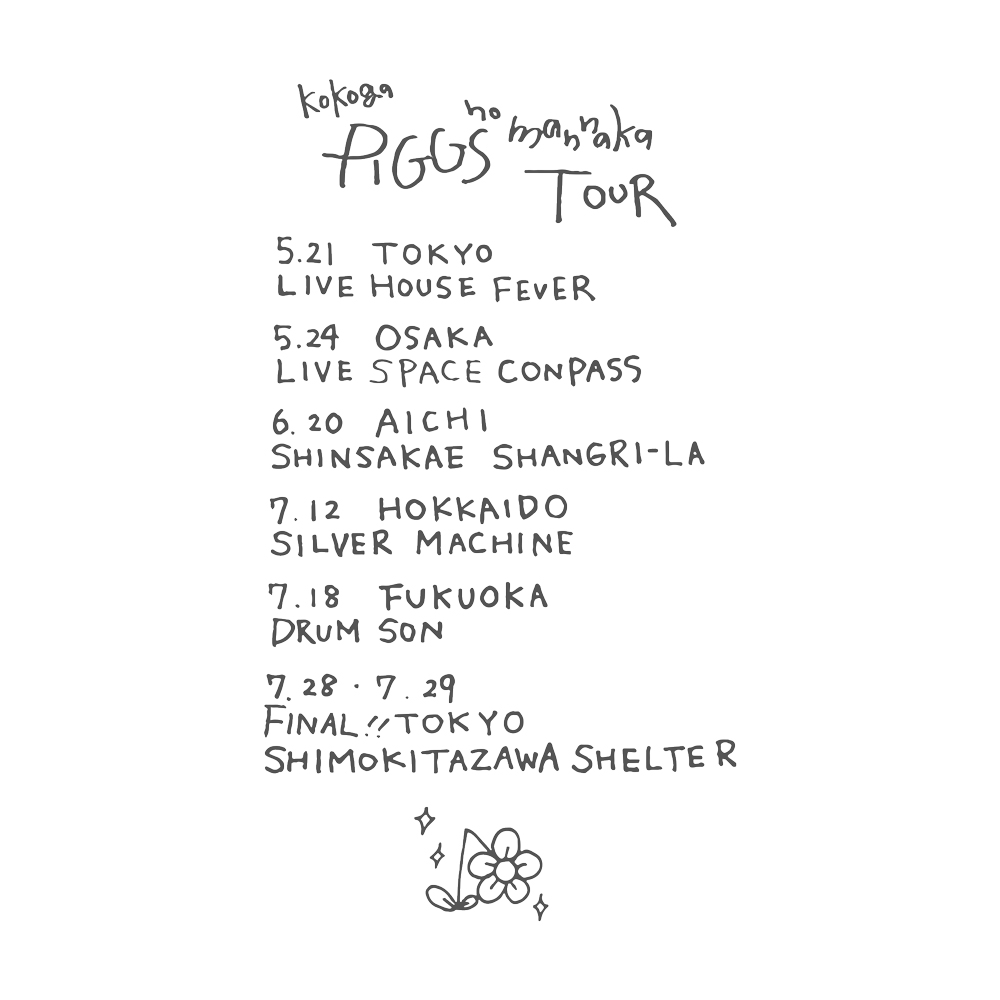 kokoga
PIGGS no mannaka
TOUR
5.21 TOKYO
LIVE HOUSE FEVER
5.24 OSAKA
LIVE SPACE CONPASS
6.20 AICHI
SHINSAKAE SHANGRI-LA
7.12 HOKKAIDO
SILVER MACHINE
7.18 FUKUOKA
DRUM SON
7.28 · 7.29
FINAL!! TOKYO
SHIMOKITAZAWA SHELTER